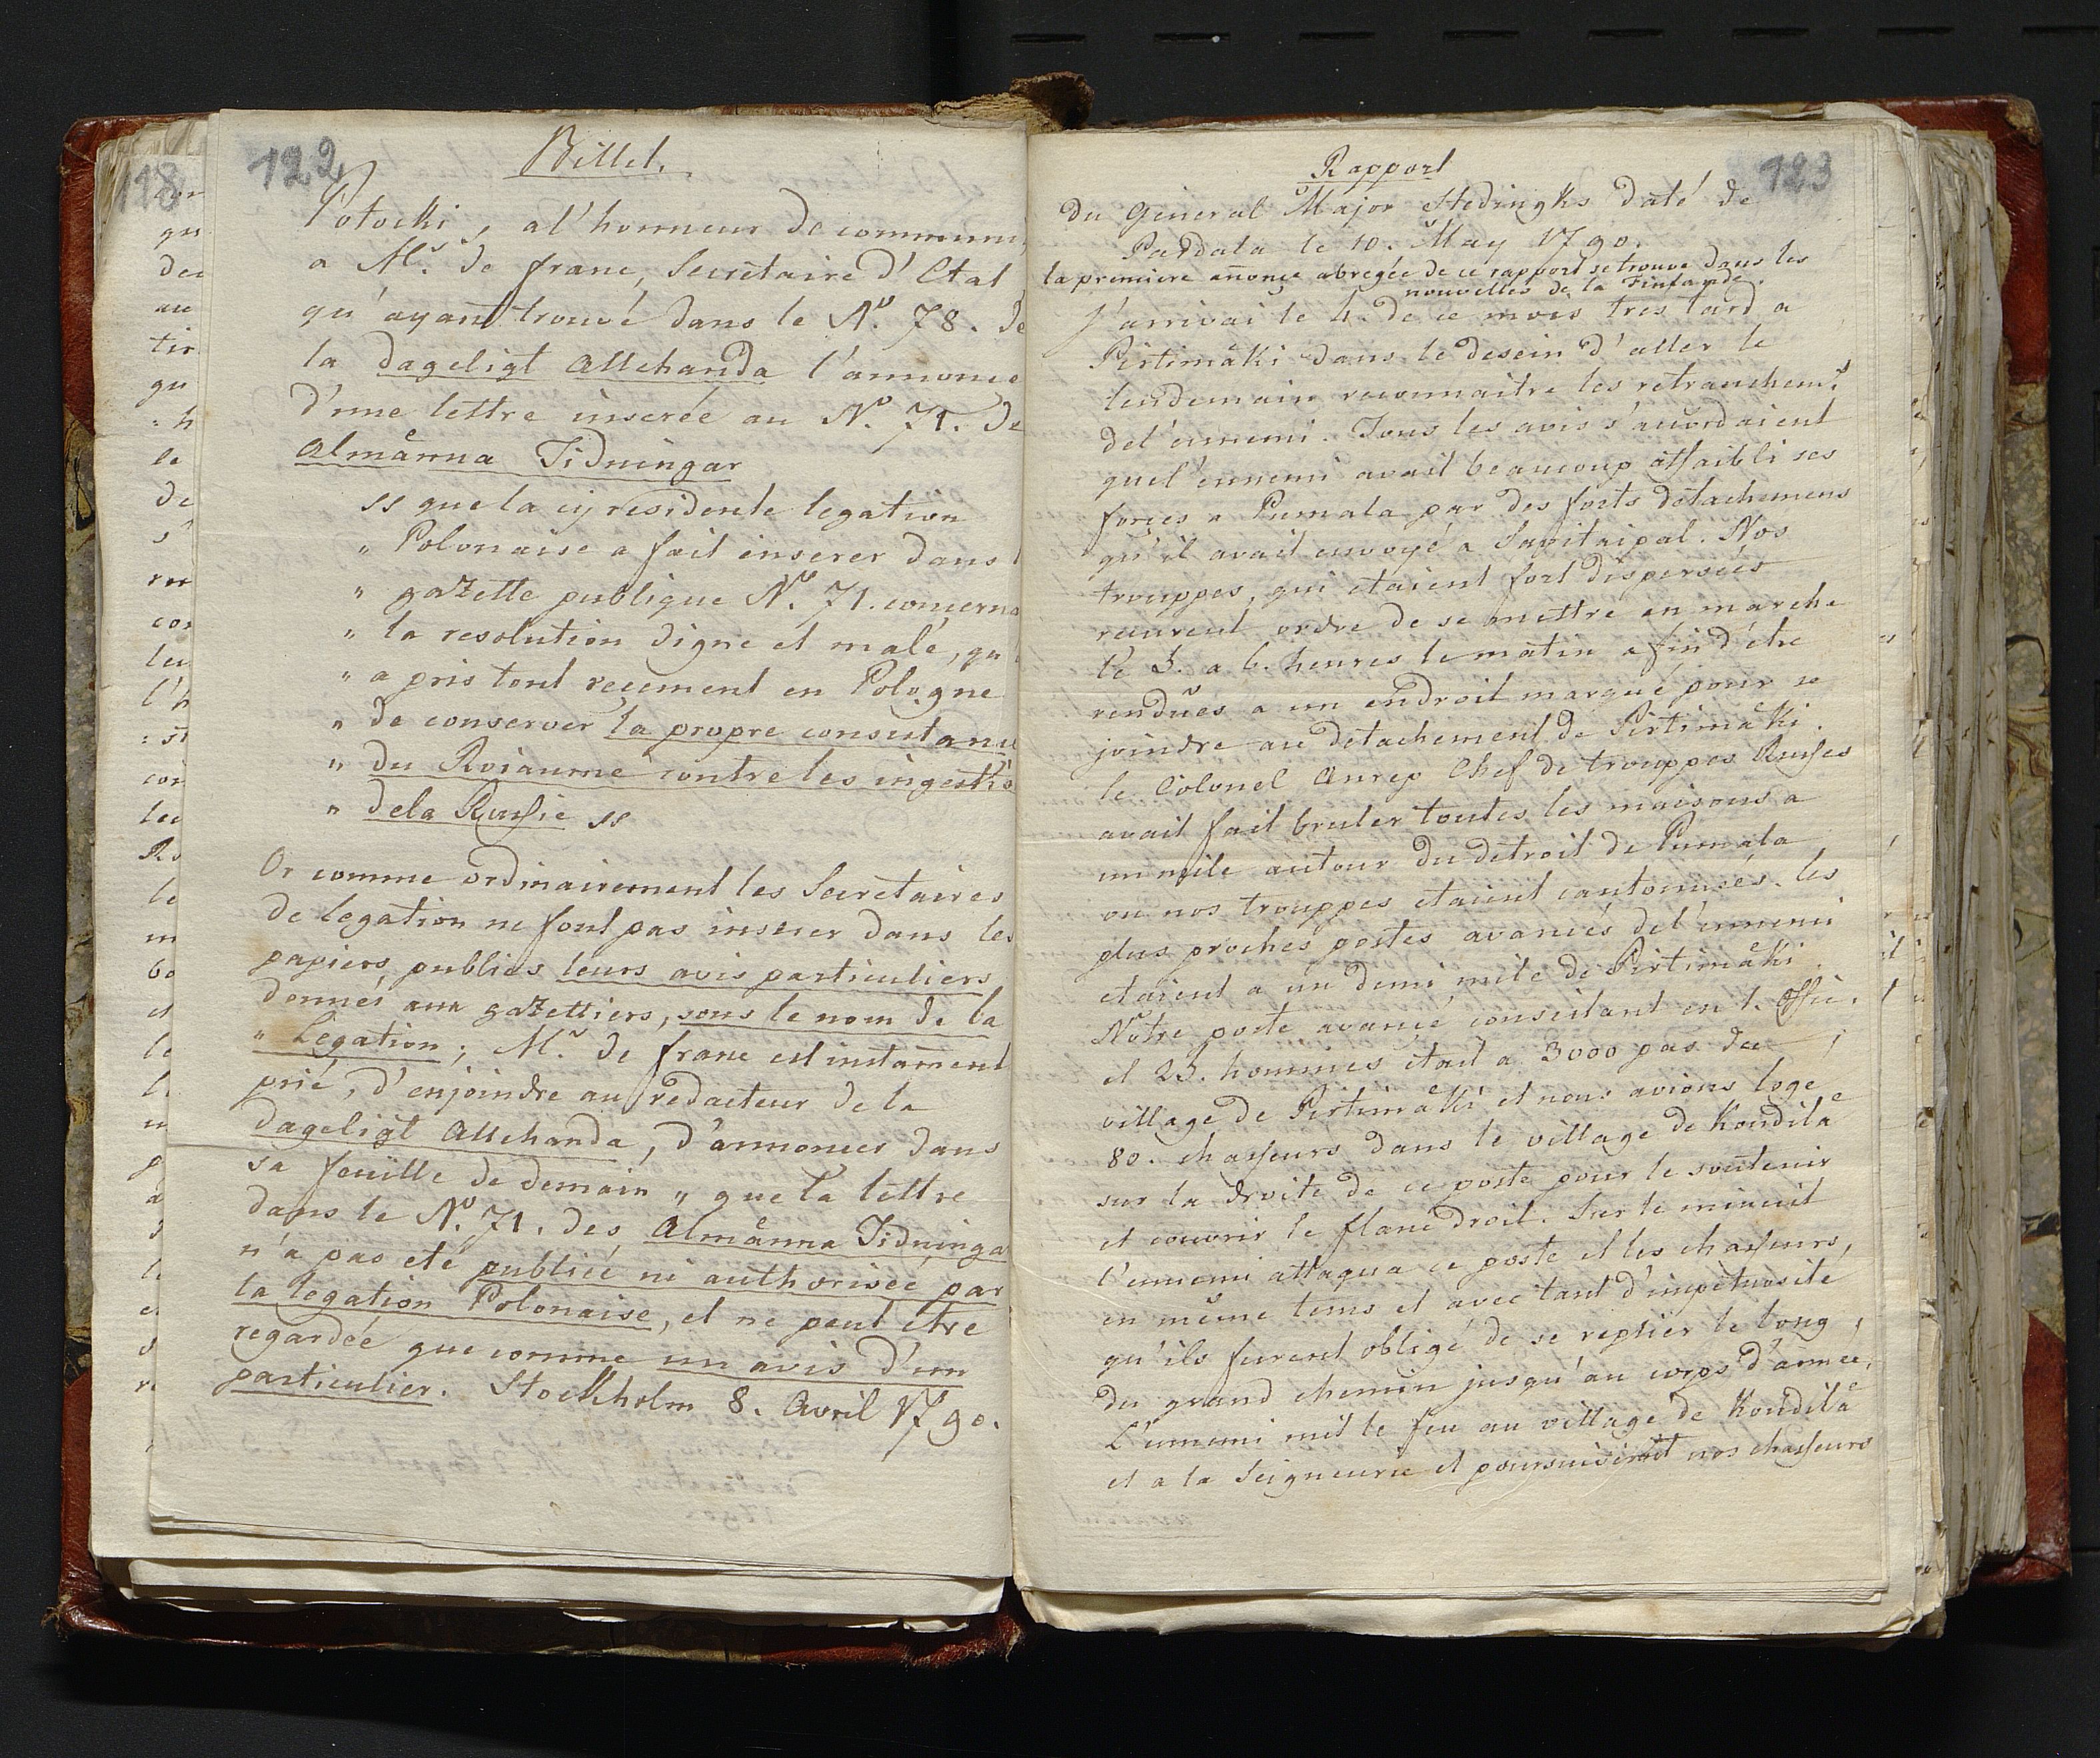 122
Billet.
Potocki, a l'honneur de communi
a Mr. de franc, Secretaire d'Etat
qu'ayant trouvé dans le No. 78. de
la dageligt Allehanda l'annonce
d'une lettre inserée au No. 71. de
Almänna Tidningar
ss que la cy residente legation
" Polonaise a fait inserer dans l
" gazette publique No. 71. concerna
" la resolution digne et male, qu
" a pris tout recement en Pologne
" de conserver la propre consistance
" du Roiaume contre les ingestio
" dela Russie ss
Or comme ordinairement les Secretaires
de legation ne font pas inserer dans les
papiers publics leurs avis particuliers
donnés aux gazettiers, sous le nom de la
" Legation; Mr. de franc est instament
prié, d'enjoindre au redacteur de la
dageligt Allehanda, d'annoncer dans
sa feuille de demain " que la lettre
dans le No. 71. des Almänna Tidninga
n'a pas eté publiée ni authorisée par
la legation Polonaise, et ne peut etre
regardée que comme un avis d'un
particulier. Stockholm 8. Avril 1790.
123
Rapport
du General Major Stedingks daté de
Pardala le 10. May 1790.
la premiere anonce abregée de ce rapport se trouve dans les
nouvelles de la Finlande.
J'arrivai le 4. de ce mois tres tard a
Pirtimäki dans le desein d'aller le
lendemain reconnaitre les retranchemts
del'ennemi. Tous les avis s'accordaient
quel'ennemi avait beaucoup affaibli ses
forces a Pumala par des forts detachemens
qu'il avait envoyé a Savitaipal. Nos
trouppes, qui etaient fort dispersées
recurent ordre de se mettre en marche
le 5. a 6. heures le matin afin d'etre
rendües a un endroit marqué pour se
joindre au detachement de Pirtimäki.
le Colonel Anrep Chef de trouppes Russes
avait fait bruler toutes les maisons a
un mile autour du detroit de Pumala
ou nos trouppes etaient cantonnées. les
plus proches postes avancés del'ennemi
etaient a un demi mile de Pirtimäki.
Notre poste avancé consistant en 1. Offic.
et 25. hommes etait a 3000 pas du
village de Pirtimäki et nous avions logé
80. chasseurs dans le village de Kondilä
sur la droite de ce poste pour le soutenir
et couvrir le flanc droit. Sur le minuit
l'ennemi attaqua ce poste et les chasseurs,
en même tems et avec tant d'impetuosité
qu'ils furent obligé de se replier le long
du grand chemin jusqu'au corps d'armée.
L'ennemi mit le feu au village de Kondilä
et a la Seigneurie et poursuivirent nos chasseurs